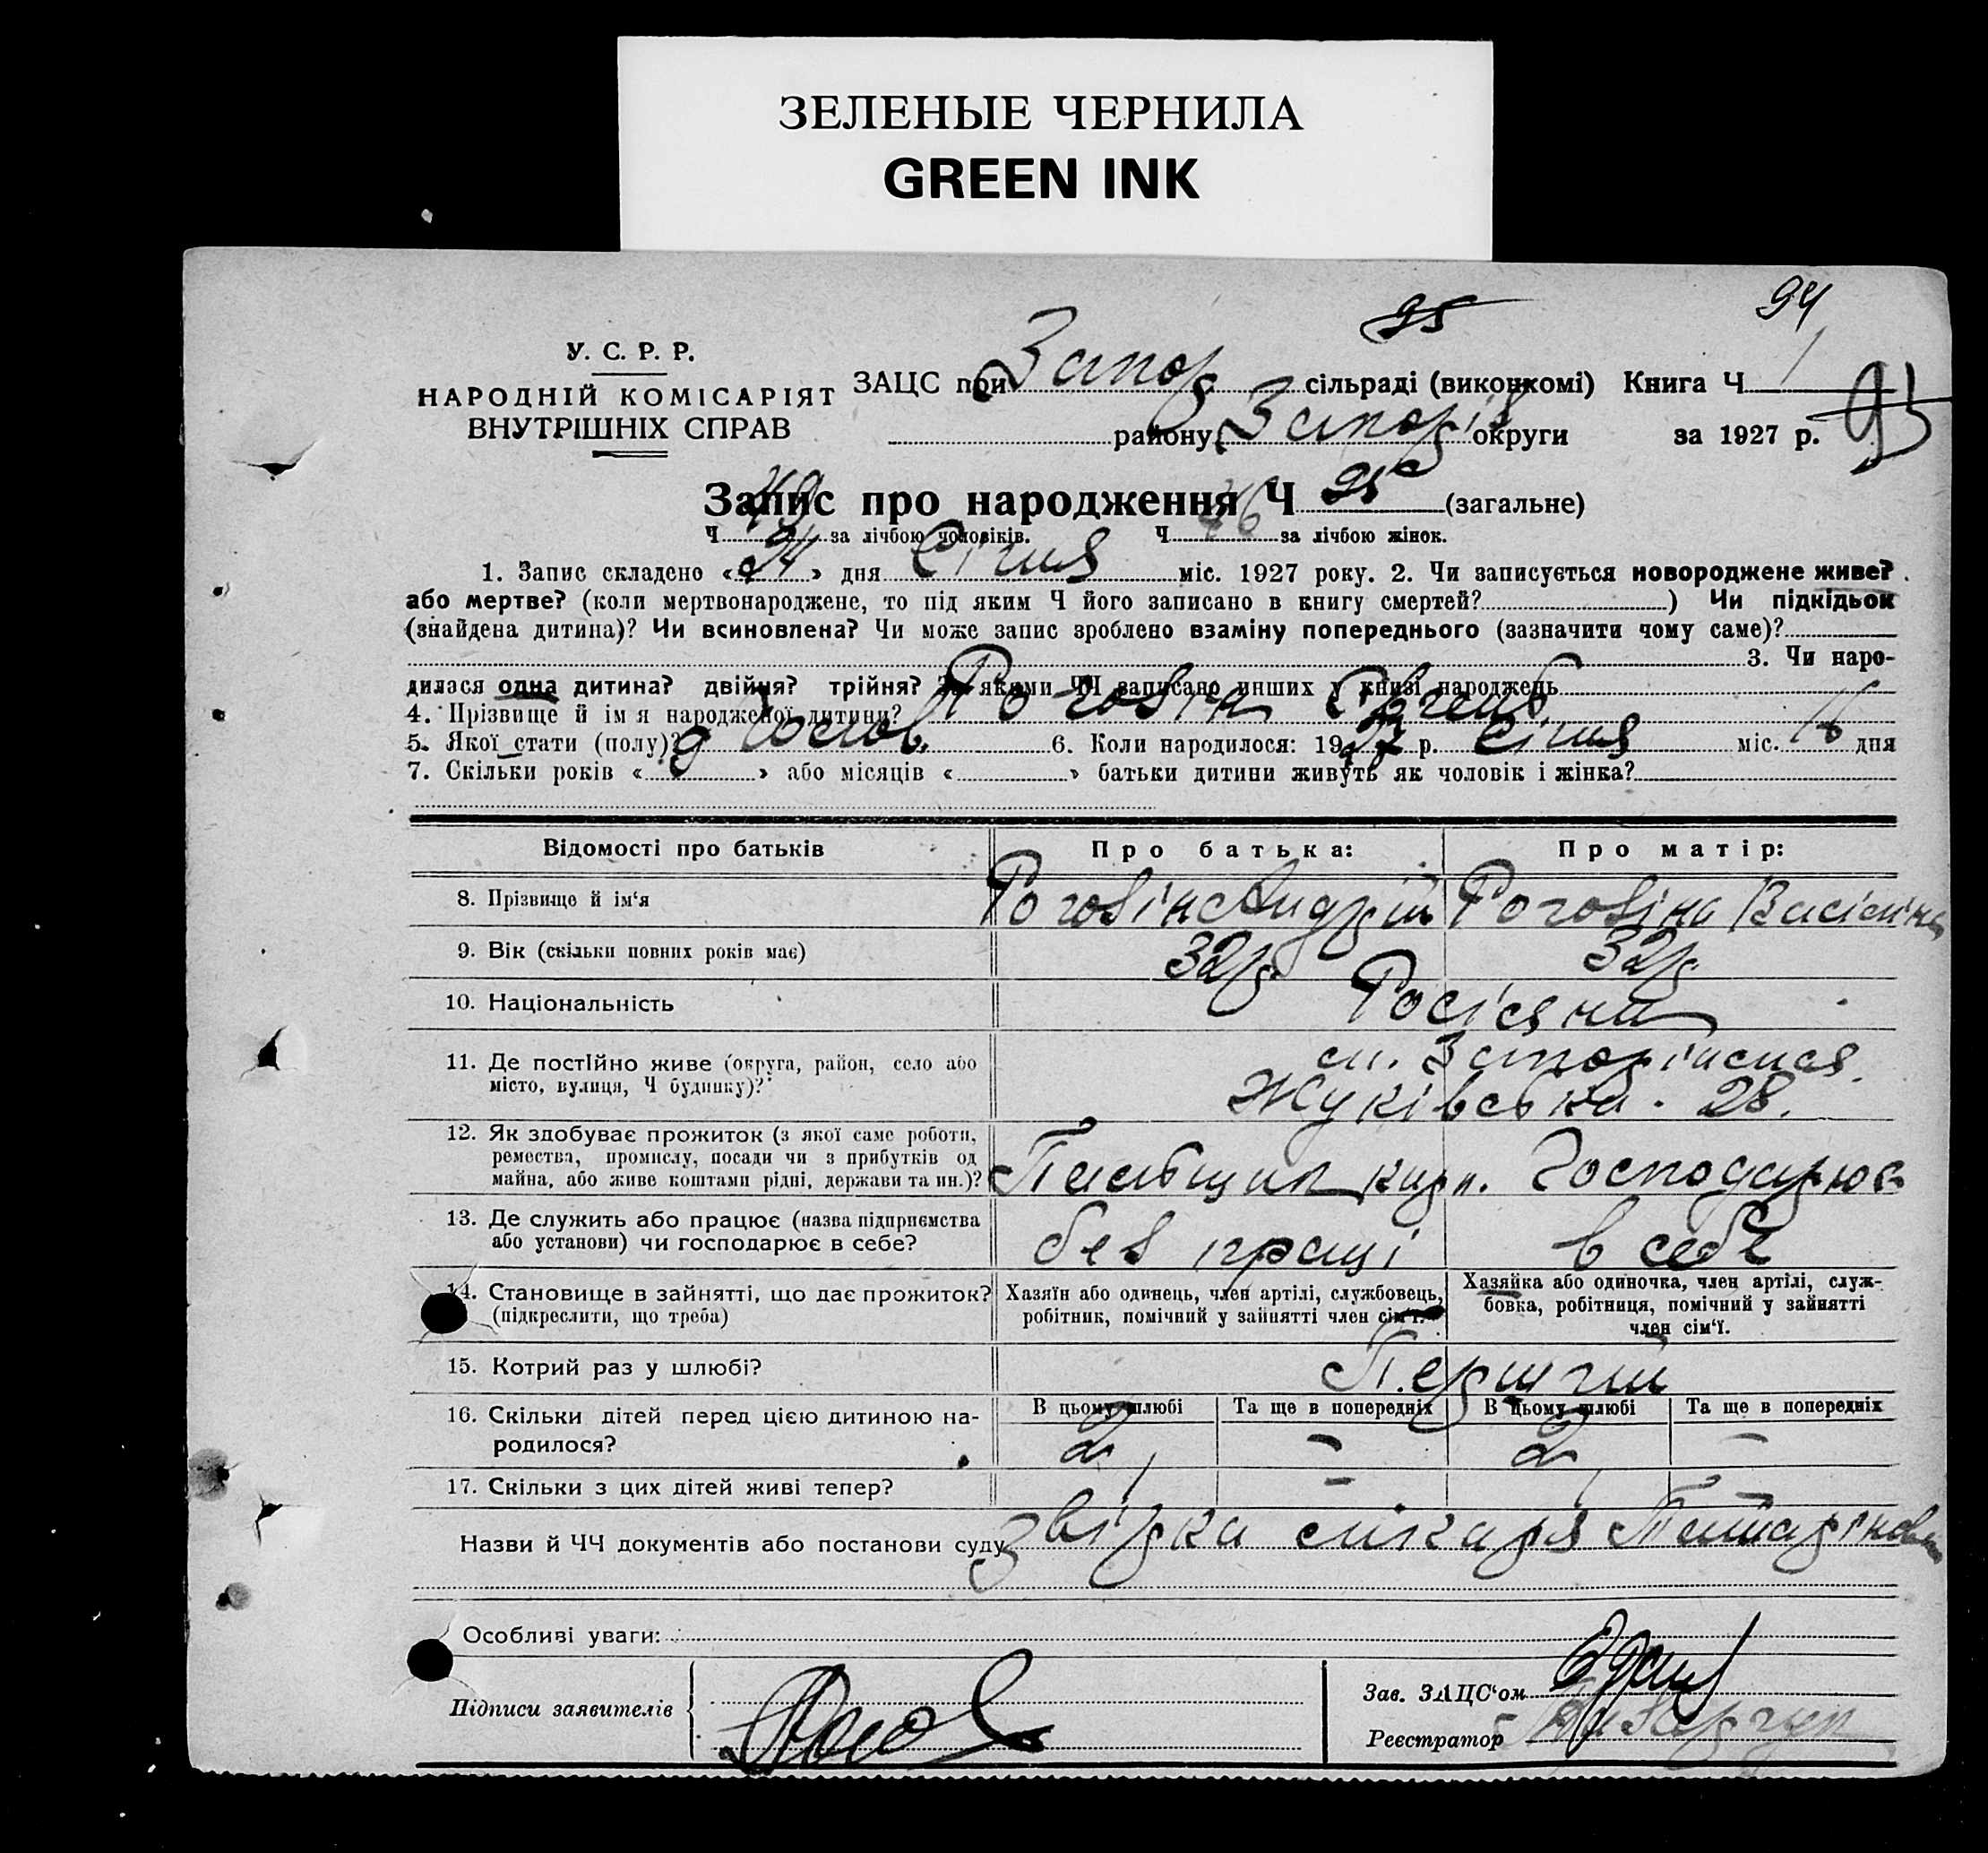 ЗЕЛЕНЫЕ ЧЕРНИЛА
GREEN INK
95 94
У. С. Р. Р.
НАРОДНІЙ КОМІСАРІЯТ
ВНУТРІШНІХ СПРАВ
ЗАЦС при Запор сільраді (виконкомі) Книга Ч 1
району Запоріз округи за 1927 р. 93
Запис про народження Ч 95 (загальне)
Ч 49 за лічбою чоловіків. Ч 46 за лічбою жінок.
1. Запис складено « 24 » дня Січня міс. 1927 року. 2. Чи записується новороджене живе?
або мертве? (коли мертвонароджене, то під яким Ч його записано в книгу смертей? ) Чи підкідьок
(знайдена дитина)? Чи всиновлена? Чи може запис зроблено взаміну попереднього (зазначити чому саме)?
3. Чи наро-
дилася одна дитина? двійня? трійня? За якими ЧЧ записано инших у книзі народжень
4. Прізвище й імя народженої дитини? Роговін Євгень
5. Якої стати (полу)? чолов. 6. Коли народилося: 1927 р. січня міс. 16 дня
7. Скільки років « 9 » або місяців « » батьки дитини живуть як чоловік і жінка?
Відомості про батьків Про батька: Про матір:
8. Прізвище й ім‘я Роговін Андрій Роговіна
9. Вік (скільки повних років має) 32р. 32р.
10. Національність Росіяни
11. Де постійно живе (округа, район, село або
місто, вулиця, Ч будинку)? Жуківська. 28.
12. Як здобуває прожиток (з якої саме роботи,
ремества, промислу, посади чи з прибутків од
майна, або живе коштами рідні, держави та ин.)? Господарює
13. Де служить або працює (назва підприємства
або установи) чи господарює в себе? без праці в себе
14. Становище в зайнятті, що дає прожиток?
(підкреслити, що треба)
Хазяїн або одинець, член артілі, службовець,
робітник, помічний у зайнятті член сім‘ї.
Хазяйка або одиночка, член артілі, служ-
бовка, робітниця, помічний у зайнятті
член сім‘ї.
15. Котрий раз у шлюбі? Перший
16. Скільки дітей перед цією дитиною на-
родилося?
В цьому шлюбі Та ще в попередніх В цьому шлюбі Та ще в попередніх
2 - 2 -
17. Скільки з цих дітей живі тепер? 1 - 1 -
Назви й ЧЧ документів або постанови суду звірка лікаря
Особливі уваги:
Підписи заявителів
Зав. ЗАЦС‘ом
Реєстратор